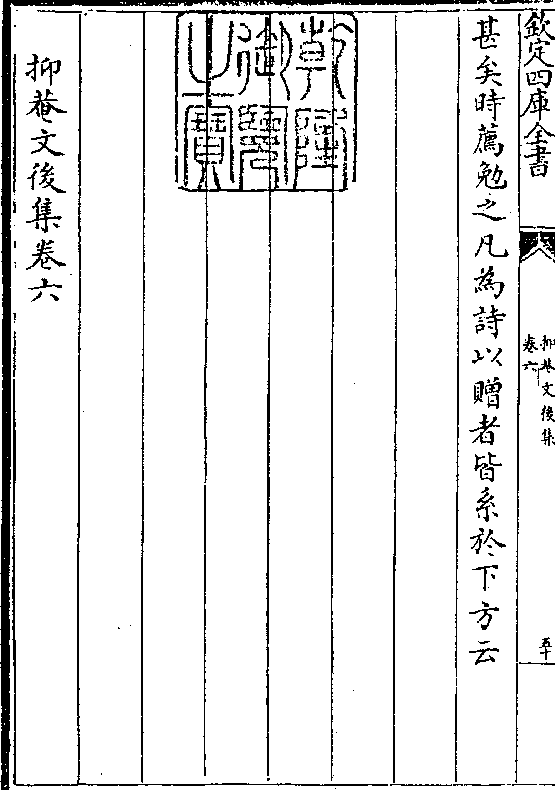 欽定四庫全書
抑菴文後集
卷六
五十
甚矣時薦勉之凡為詩以贈者皆系於下方云
乾隆御覽之寶
抑菴文後集卷六